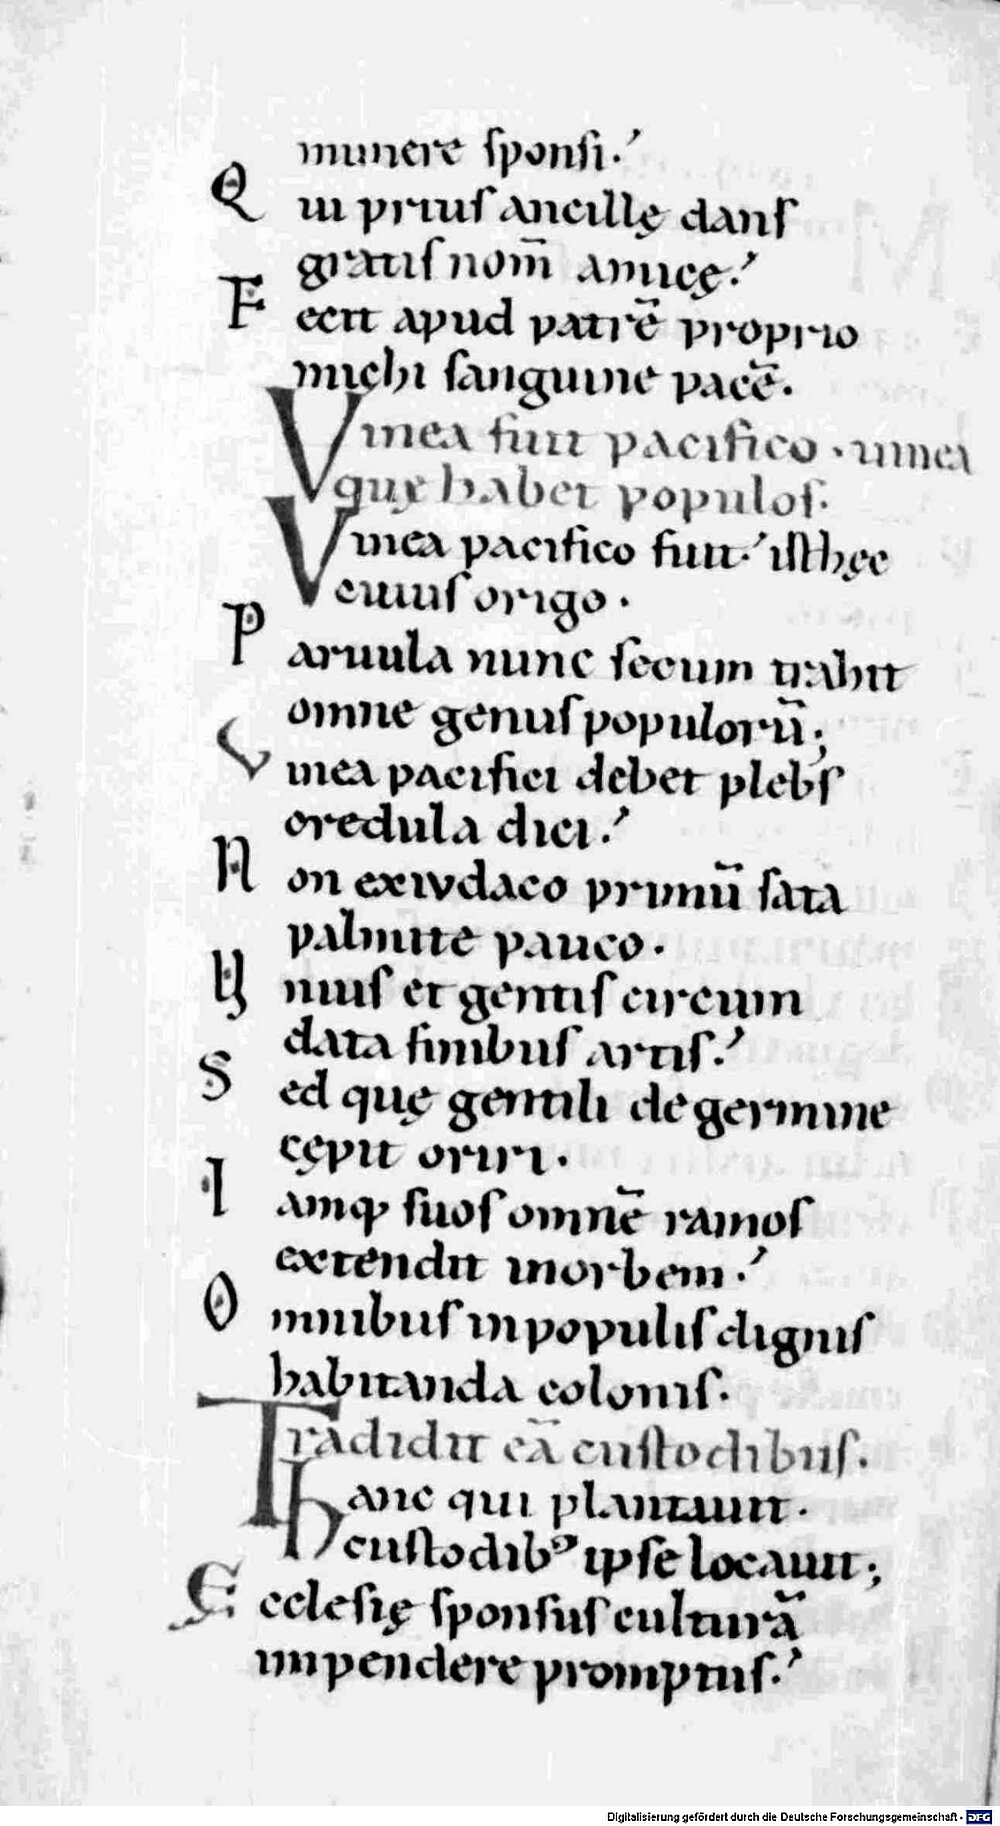 munere sponsi.
Qui prius ancillę dans
gratis nom̄ amicę.
Fecit apud patrē proprio
michi sanguine pacē.
Vinea fuit pacifico . uinea
quę habet populos.
Vinea pacifico fuit. isthęc
cuius origo .
Paruula nunc secum trahit
omne genus populorū;
Vinea pacifici debet plebs
credula dici.
Non ex iudaeo primū sata
palmite pauco.
Unius et gentis circum
data finibus artis.
Sed quę gentili de germine
cępit oriri.
Iamq; suos omnē ramos
extendit in orbem.
Omnibus in populis dignis
habitanda colonis.
Tradidit eā custodibus.
Hanc qui plantauit.
custodib᾿ ipse locauit;
Ecclesię sponsus culturā
impendere promptus.
Digitalisierung gefördert durch die Deutsche Forschungsgemeinschaft - DFG